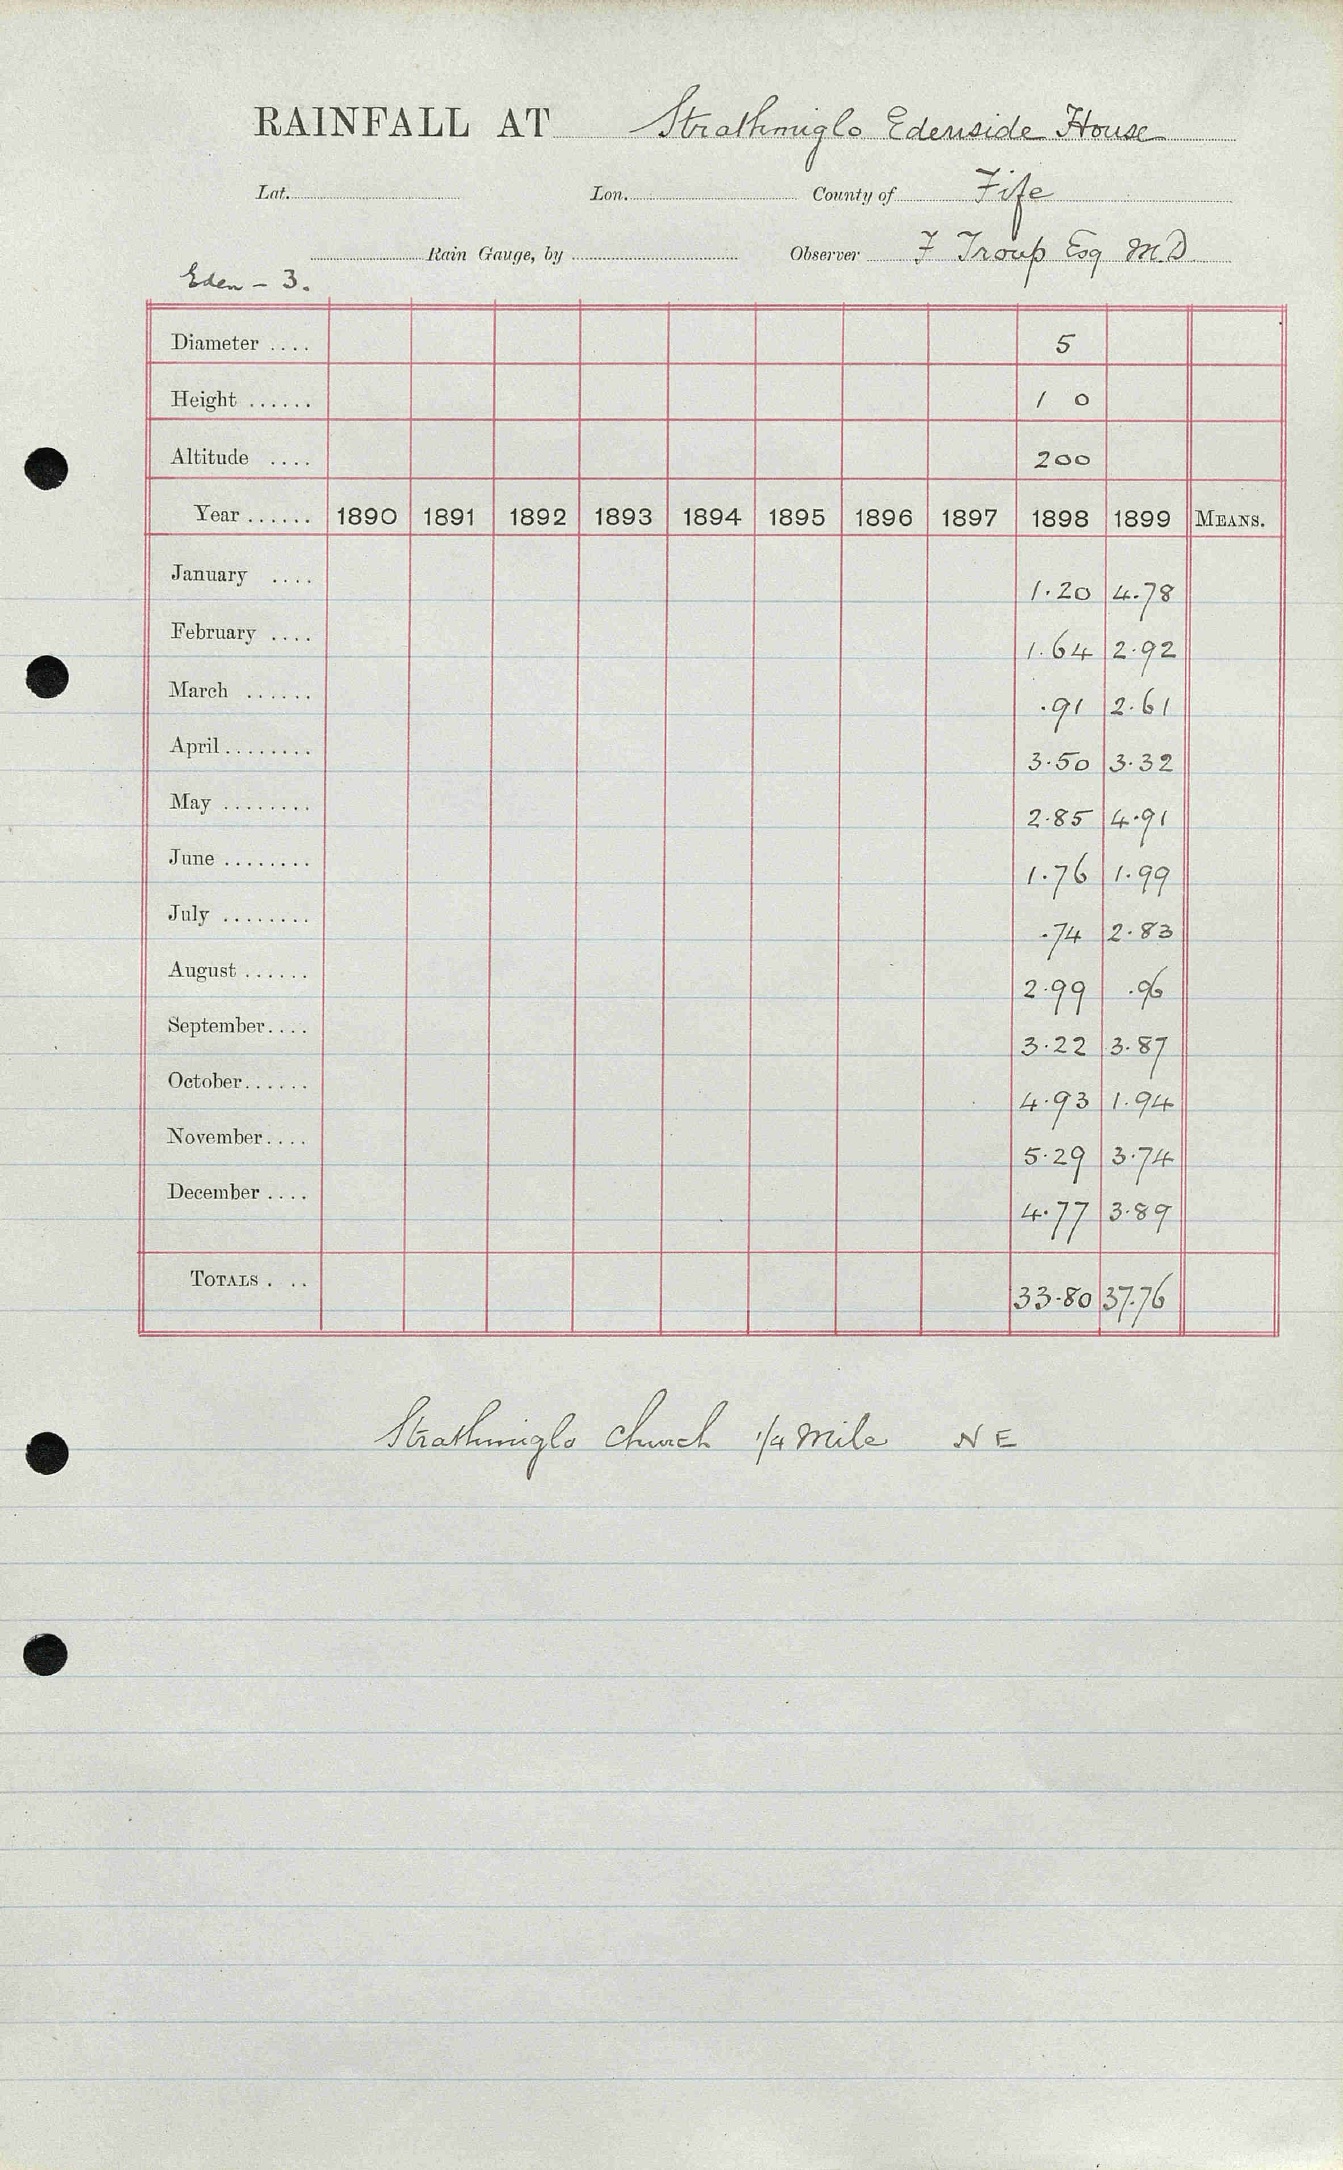 RAINFALL AT Strathmiglo Edenside House
Lat. Lon. County of Fife
Rain Gauge, by Observer F Troup Esq M.D
Eden - 3.
Diameter .... 5
Height ...... 1 0
Altitude .... 200
Year ...... 1890 1891 1892 1893 1894 1895 1896 1897 1898 1899 MEANS.
January .... 1.20 4.78
February .... 1.64 2.92
March ...... .91 2.61
April ........ 3.50 3.32
May ........ 2.85 4.91
June ........ 1.76 1.99
July ........ .74 2.83
August ...... 2.99 .96
September.... 3.22 3.87
October...... 4.93 1.94
November.... 5.29 3.74
December .... 4.77 3.89
TOTALS . .. 33.80 37.76
Strathmiglo Church 1/4 Mile N E